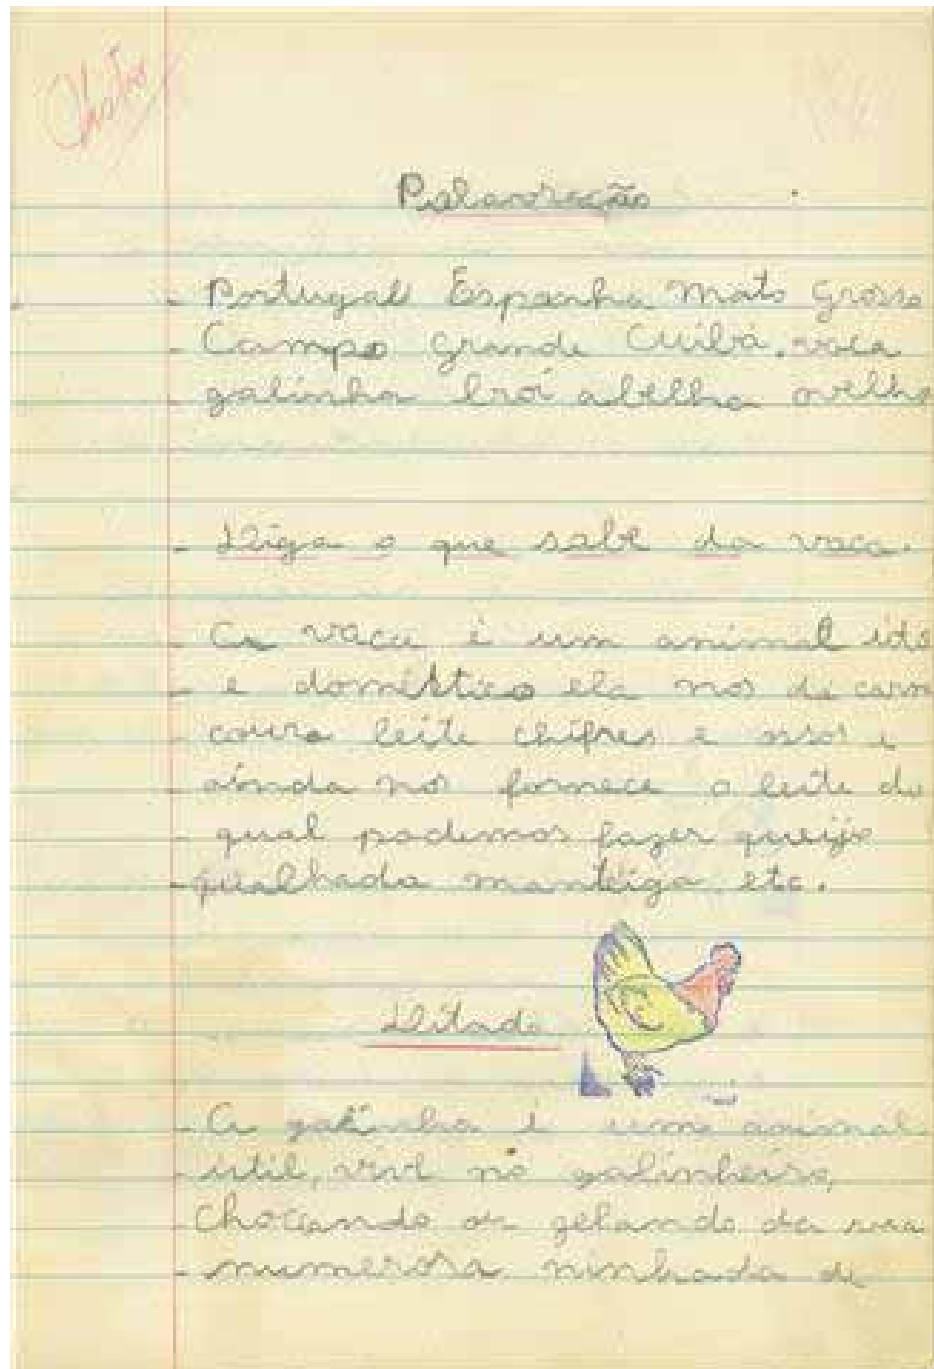 Visto
Palavração
Portugal Espanha Mato Grosso
Campo Grande Cuibá. vaca
galinha boi abelha ovelha
Diga o que sabe da vaca.
A vaca é um animal
e doméstico ela nos dá carn
couro leite chifres e osso e
ainda nos fornece o leite do
qual podemos fazer queijo
qualhada manteiga, etc.
Ditado
A galinha é uma animal
útil, vive no galinheiro,
Chocando ou da sua
numerosa ninhada de